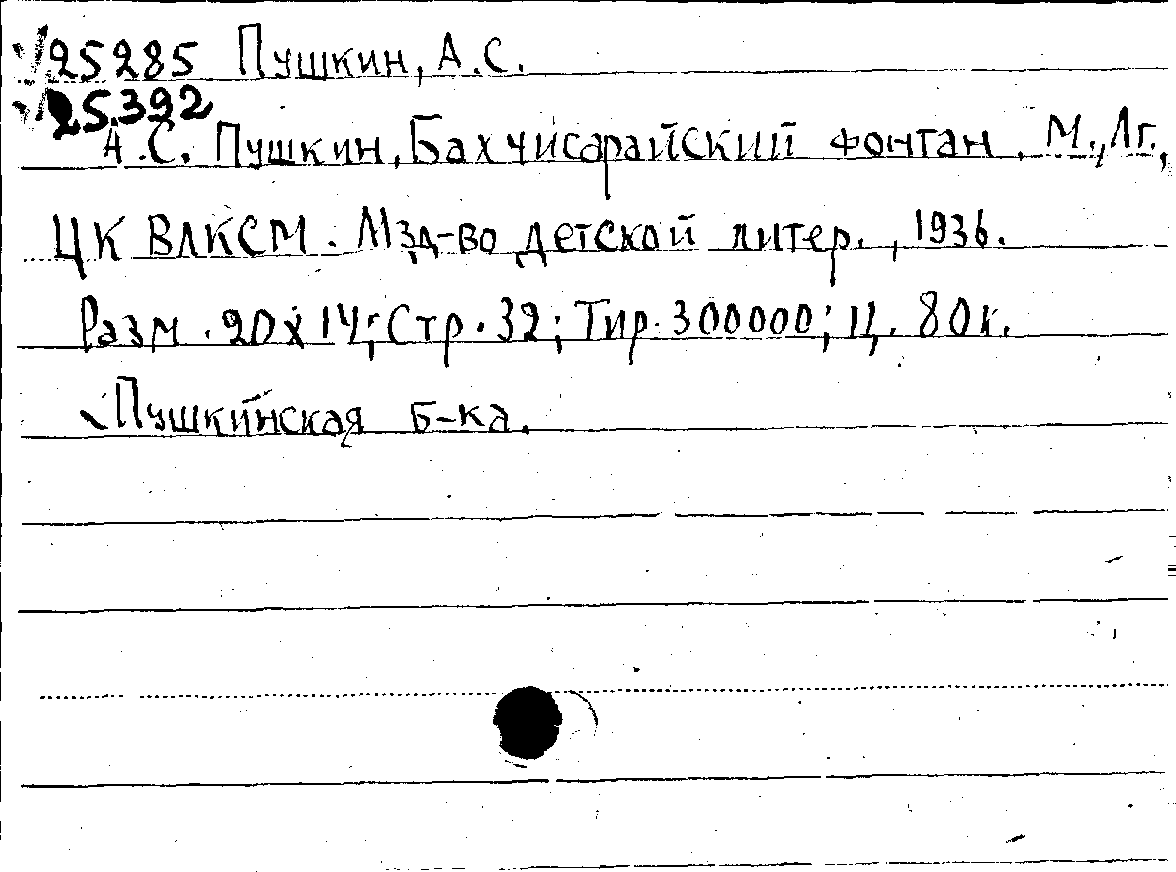 25285 Пушкин, А.С.
25.392
А.С. Пушкин, Бахчисарайский фонтан. М., Лг.,
ЦК ВЛКСМ. Изд-во детской литер., 1936.
Разм. 20х14; Стр. 32; Тир. 300000; Ц. 80к.
Пушкинская б-ка.